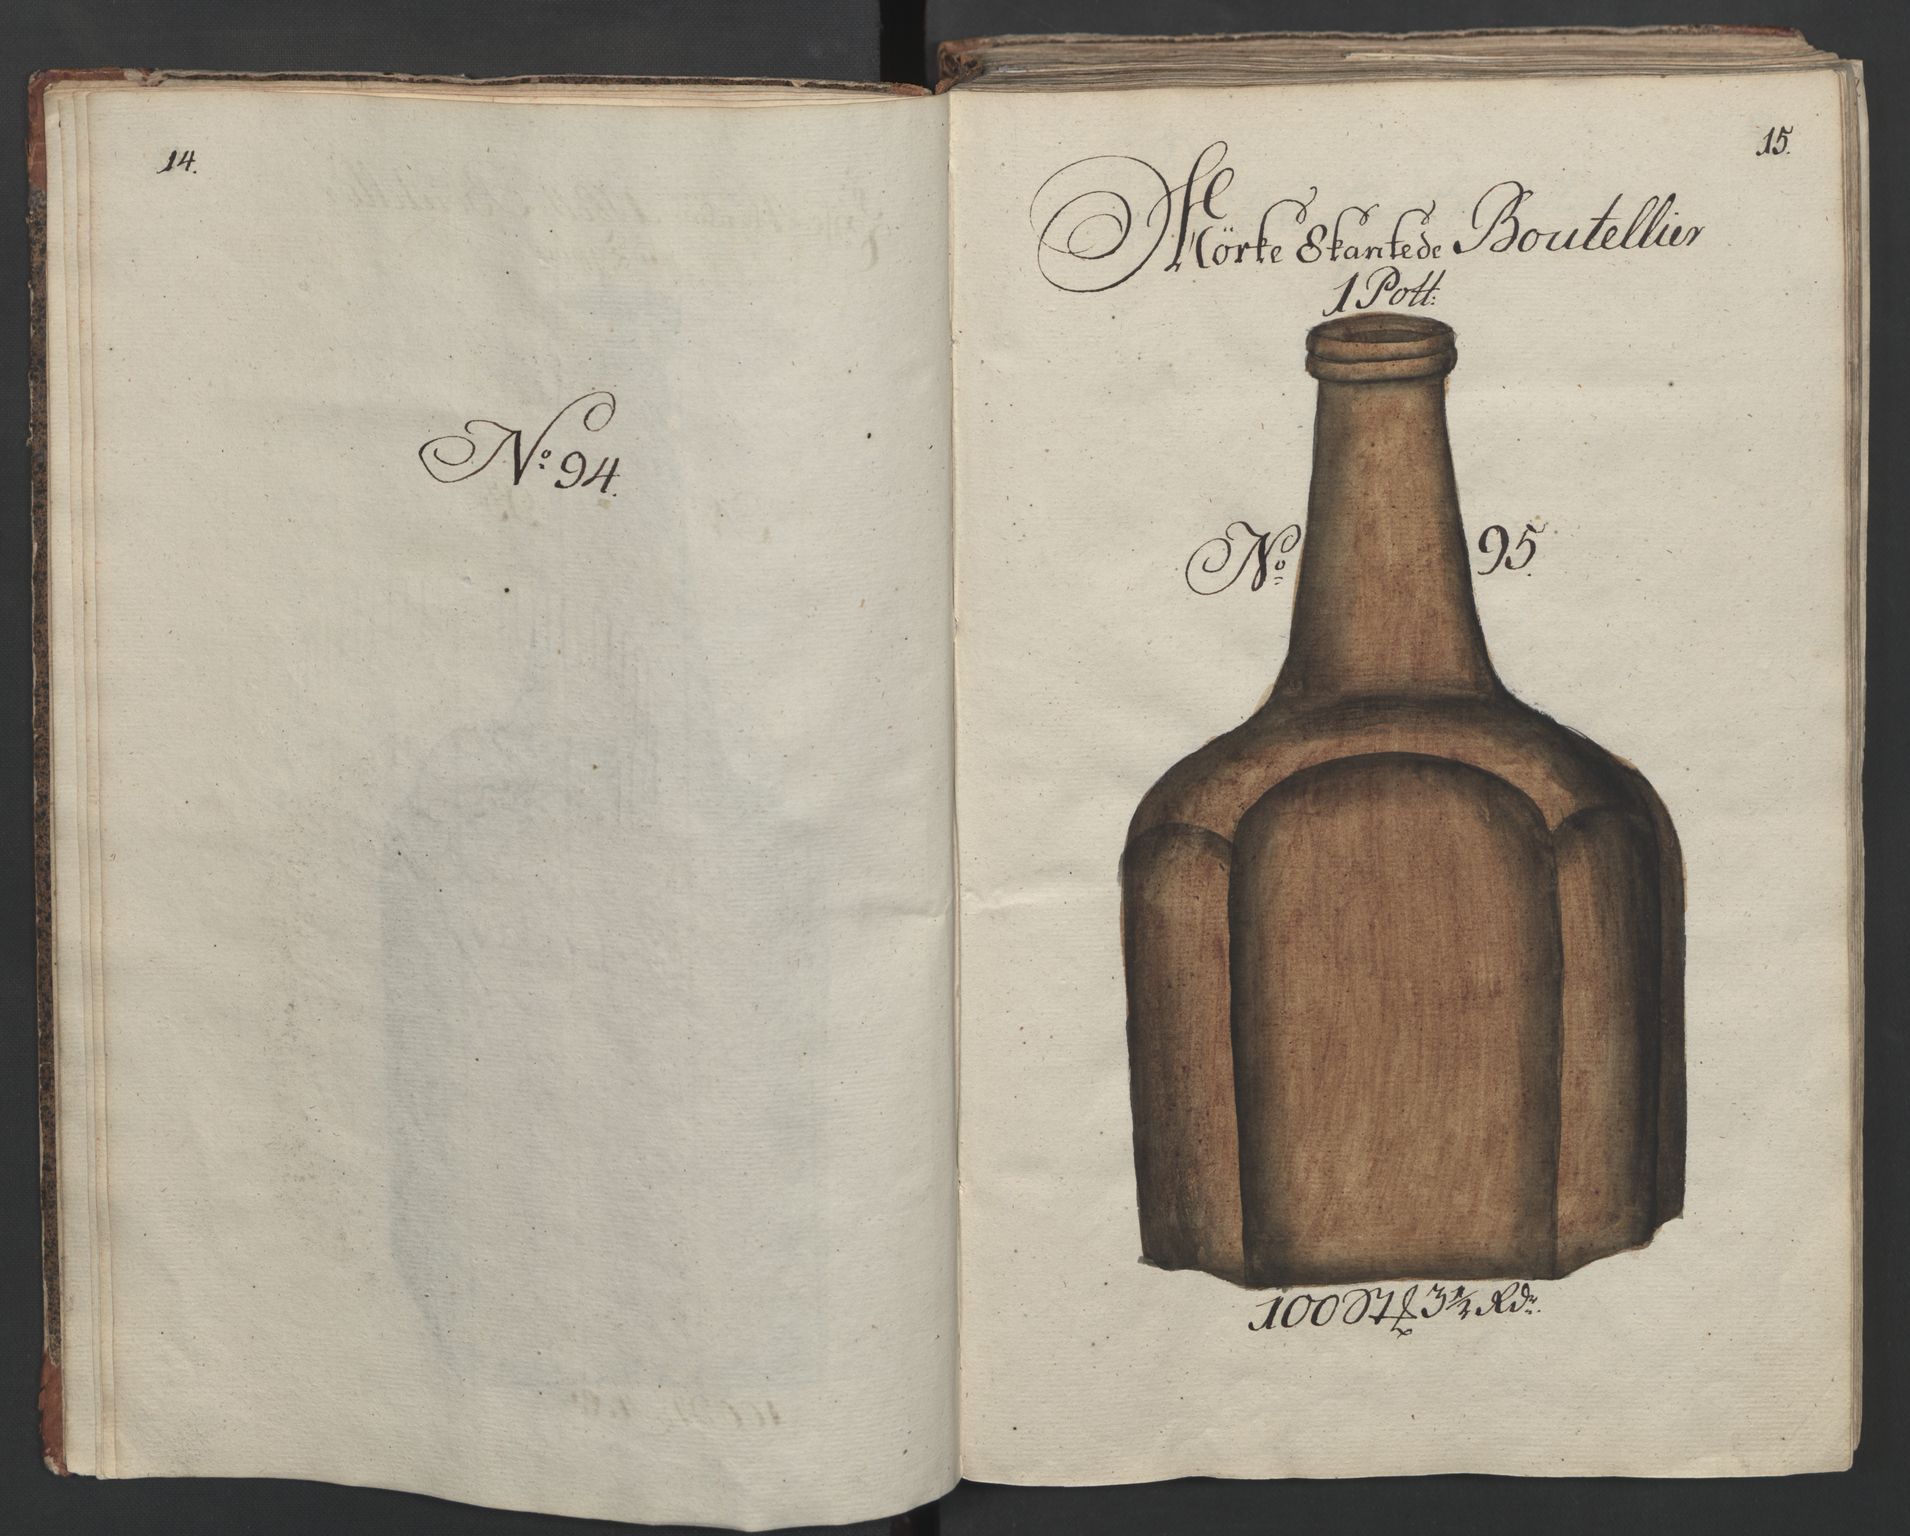 14.
No. 94.
15.
Mörke Skantede Boutellier
1 Pott:
No. 95.
100 St 3 1/2 Rdr.